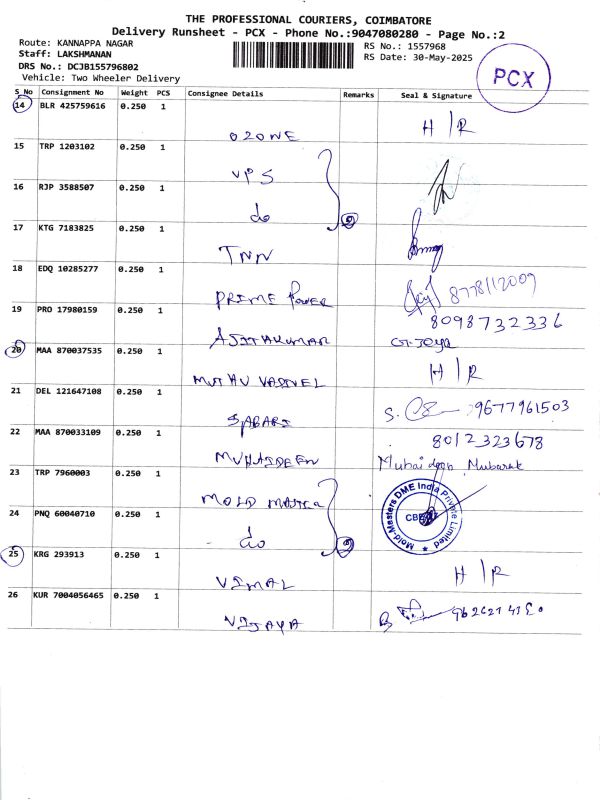 THE PROFESSIONAL COURIERS, COIMBATORE
Delivery Runsheet - PCX - Phone No.:9047080280 - Page No.:2
Route: KANNAPPA NAGAR
Staff: LAKSHMANAN
DRS No.: DCJB155796802
Vehicle: Two Wheeler Delivery
RS No.: 1557968
RS Date: 30-May-2025
PCX
S_No Consignment No Weight PCS Consignee Details Remarks Seal & Signature
14 BLR 425759616 0.250 1 OZONE H/R
15 TRP 1203102 0.250 1 VPS
16 RJP 3588507 0.250 1 do 2
17 KTG 7183825 0.250 1 TNN
18 EDQ 10285277 0.250 1 PRIME POWER 8778112009
19 PRO 17980159 0.250 1 AJITAKUMAR 8098732336
G.Jeya
20 MAA 870037535 0.250 1 MUTHU VADIVEL H/R
21 DEL 121647108 0.250 1 SABARI 9677961503
22 MAA 870033109 0.250 1 MUHAIDEEN 8012323678
Mubarak
23 TRP 7960003 0.250 1 MOLD MASTER
24 PNQ 60040710 0.250 1 do 2
Mold-Masters DME India Private Limited
CBE
25 KRG 293913 0.250 1 VIMAL H/R
26 KUR 7004056465 0.250 1 VIJAYA